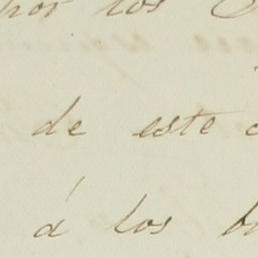 por los
de este
á los